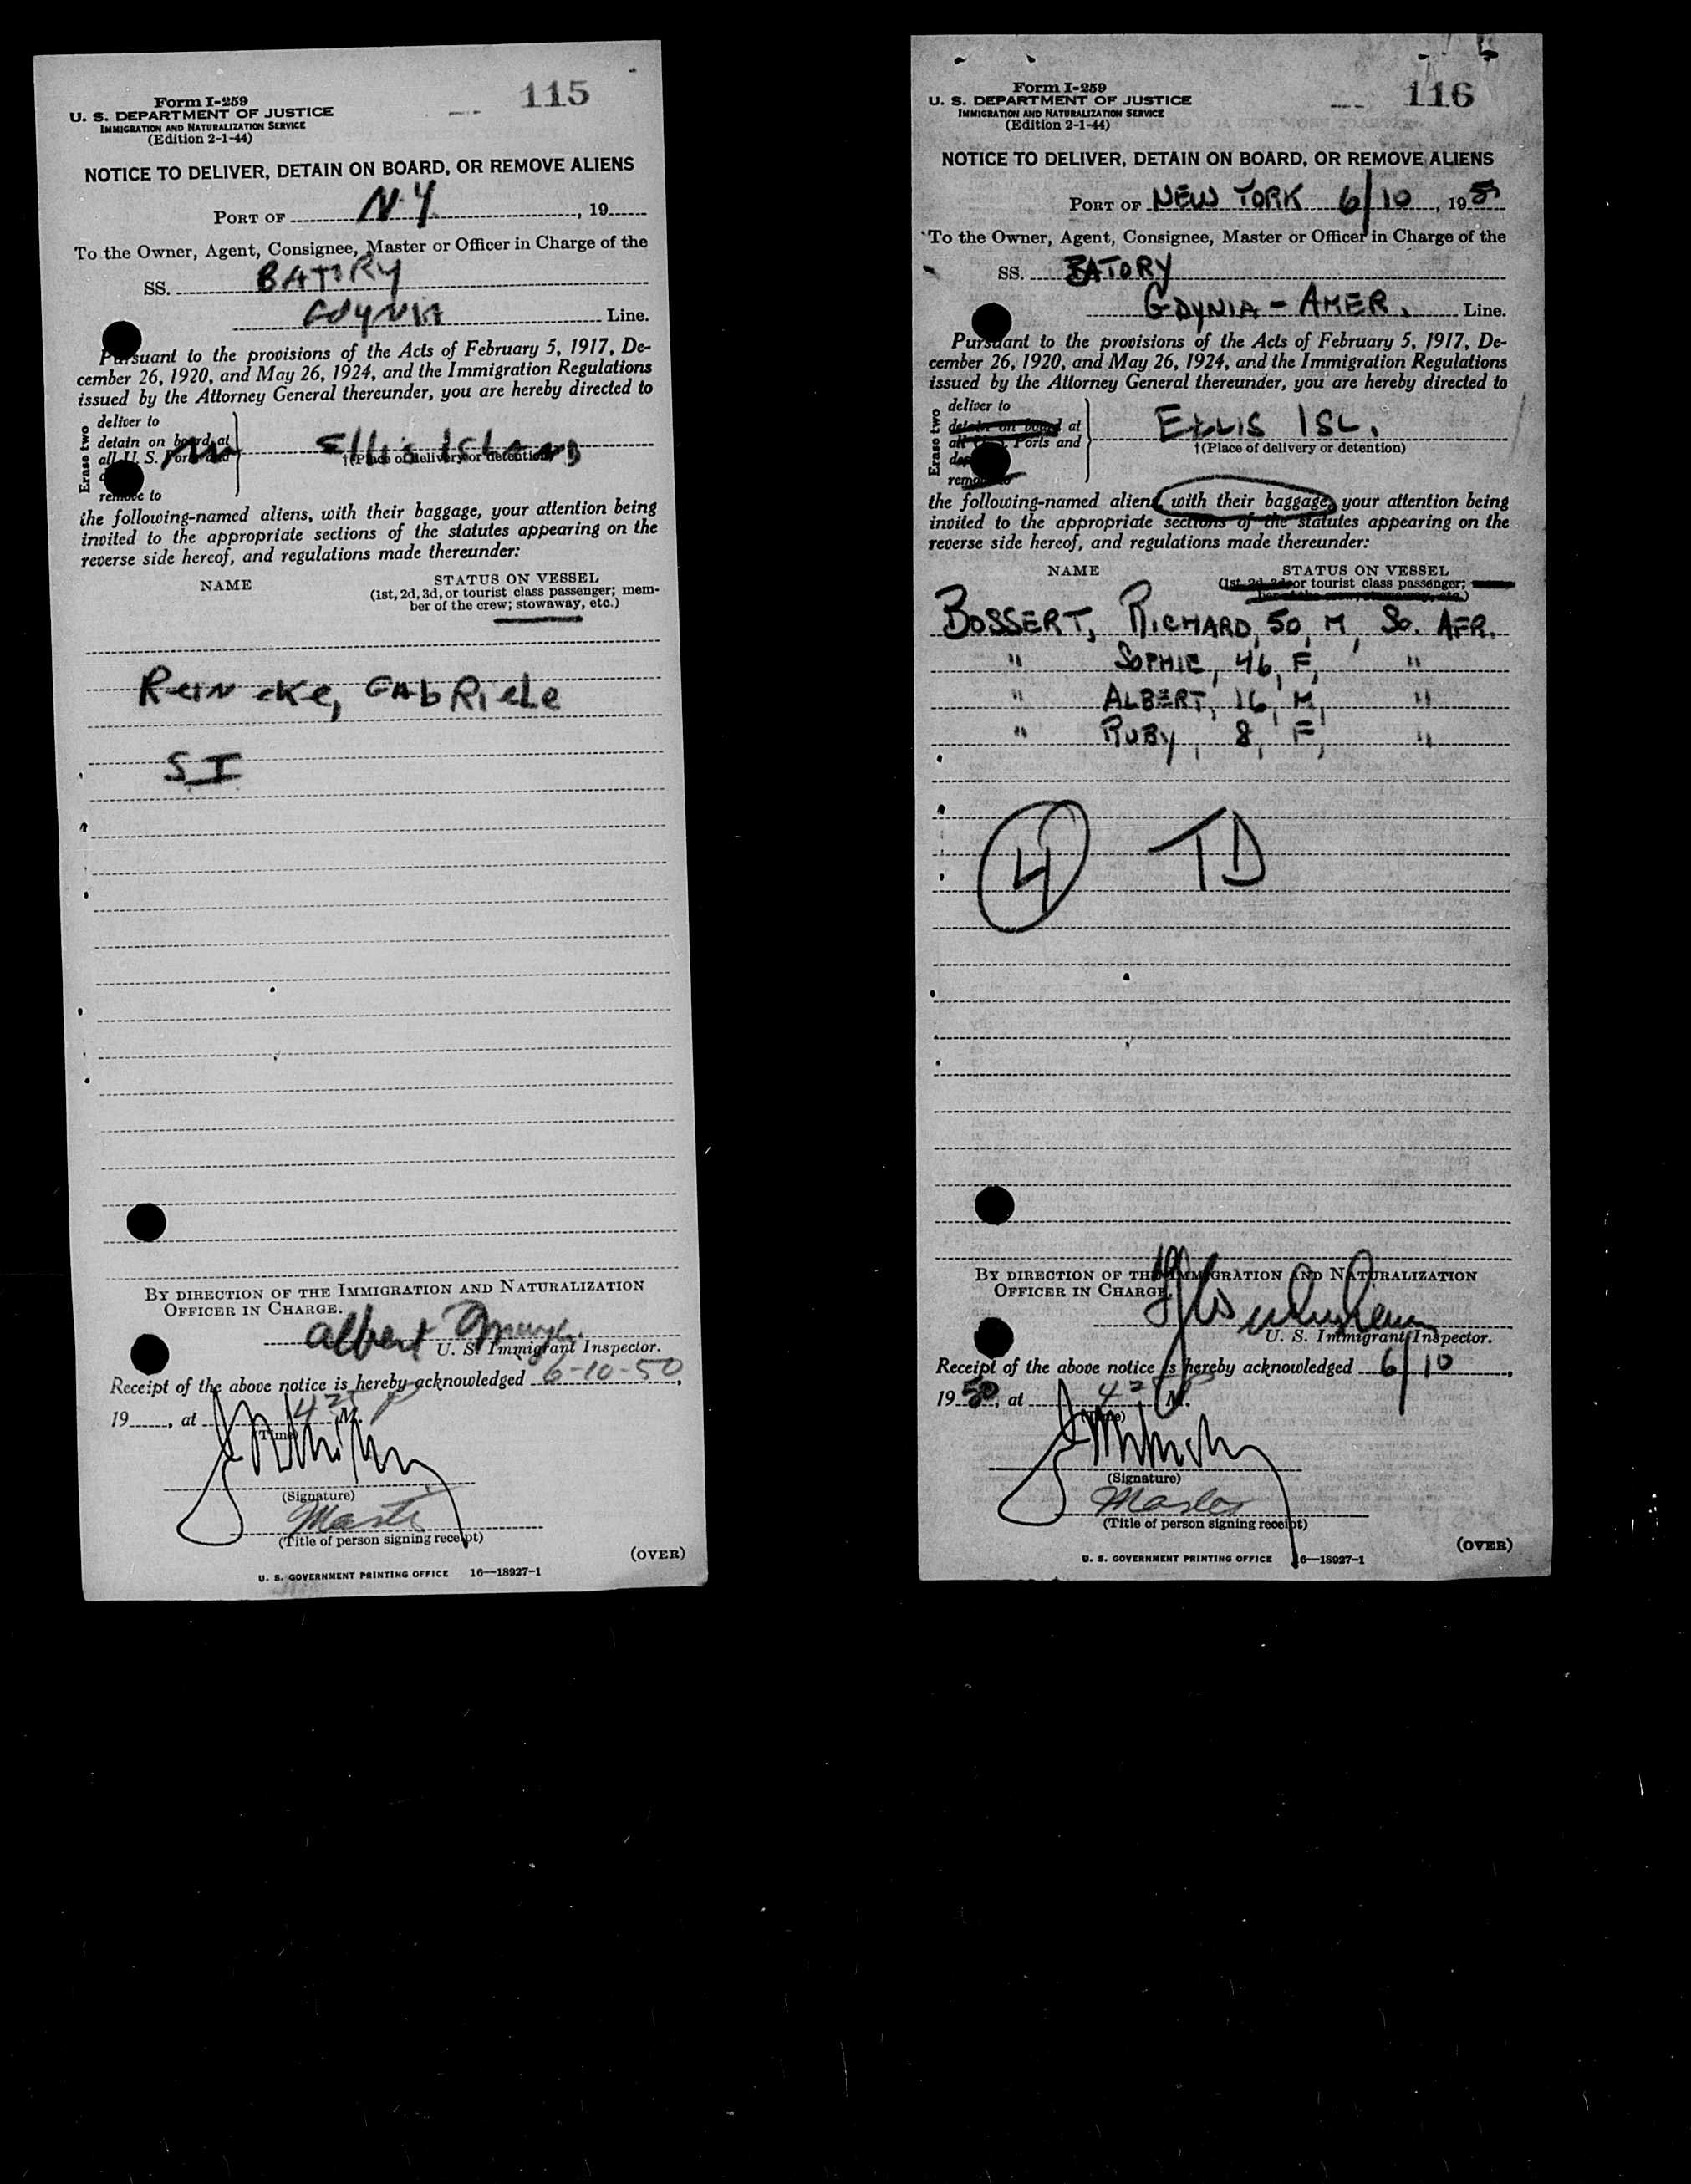 115
Form I-259
U. S. DEPARTMENT OF JUSTICE
IMMIGRATION AND NATURALIZATION SERVICE
(Edition 2-1-44)
NOTICE TO DELIVER, DETAIN ON BOARD, OR REMOVE ALIENS
PORT OF N.Y. , 19
To the Owner, Agent, Consignee, Master or Officer in Charge of the
SS. BATORY
GDYNIA Line.
Pursuant to the provisions of the Acts of February 5, 1917, De-
cember 26, 1920, and May 26, 1924, and the Immigration Regulations
issued by the Attorney General thereunder, you are hereby directed to
Erase two
deliver to
detain on board at
all U. S. Ports
remove to
Ellis Island
†(Place of delivery or detention)
the following-named aliens, with their baggage, your attention being
invited to the appropriate sections of the statutes appearing on the
reverse side hereof, and regulations made thereunder:
NAME
STATUS ON VESSEL
(1st, 2d, 3d, or tourist class passenger; mem-
ber of the crew; stowaway, etc.)
Reinecke, GAbRiele
S.I
BY DIRECTION OF THE IMMIGRATION AND NATURALIZATION
OFFICER IN CHARGE.
Albert
U. S. Immigrant Inspector.
Receipt of the above notice is hereby acknowledged 6-10-50,
19 , at M.
(Time)
(Signature)
(Title of person signing receipt)
(OVER)
U. S. GOVERNMENT PRINTING OFFICE 16—18927-1
116
Form I-259
U. S. DEPARTMENT OF JUSTICE
IMMIGRATION AND NATURALIZATION SERVICE
(Edition 2-1-44)
NOTICE TO DELIVER, DETAIN ON BOARD, OR REMOVE ALIENS
PORT OF NEW YORK 6/10, 1950
To the Owner, Agent, Consignee, Master or Officer in Charge of the
SS. BATORY
GDYNIA - AMER. Line.
Pursuant to the provisions of the Acts of February 5, 1917, De-
cember 26, 1920, and May 26, 1924, and the Immigration Regulations
issued by the Attorney General thereunder, you are hereby directed to
Erase two
deliver to
detain on board at
all Ports and
remove to
ELLIS ISL.
†(Place of delivery or detention)
the following-named aliens, with their baggage, your attention being
invited to the appropriate sections of the statutes appearing on the
reverse side hereof, and regulations made thereunder:
NAME
STATUS ON VESSEL
(1st, 2d, 3d, or tourist class passenger;
ber of the crew; stowaway, etc.)
BOSSERT, RICHARD, 50, M, SO. AFR.
" SOPHIE, 46, F, "
" ALBERT, 16, M, "
" RUBY, 8, F, "
4 TD
BY DIRECTION OF THE IMMIGRATION AND NATURALIZATION
OFFICER IN CHARGE.
U. S. Immigrant Inspector.
Receipt of the above notice is hereby acknowledged 6/10,
1950, at M.
(Time)
(Signature)
(Title of person signing receipt)
(OVER)
U. S. GOVERNMENT PRINTING OFFICE 16—18927-1